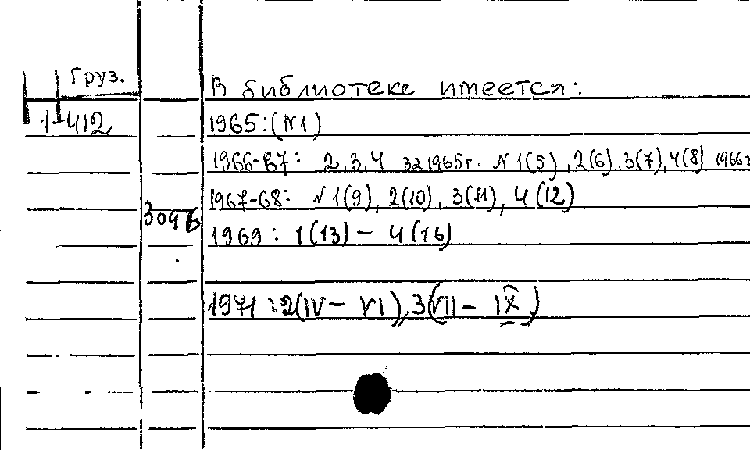 Груз.
В библиотеке имеется:
1-412
1965: (N1)
1966-67: 2, 3, 4 за 1965г. N 1(5), 2(6), 3(7), 4(8) 1966г
1967-68: N 1(9), 2(10), 3(11), 4(12)
3096
1969: 1(13) - 4(16)
1971: 2(IV - VI), 3(VII - IX)